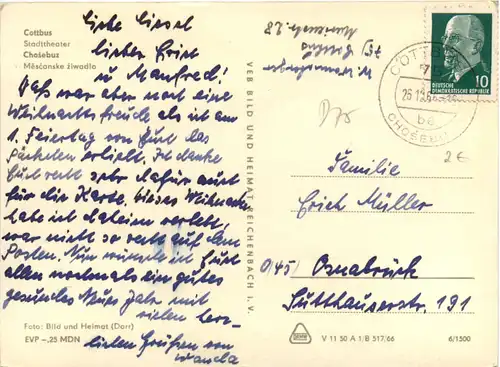 Cottbus
Stadttheater
Chośebus
Měsćanske źiwadło
Liebe Liesel
lieber Erich
u Manfred!
Das war aber noch eine
Weihnachtsfreude als ich am
1. Feiertag von Euch das
Päckchen erhielt. Ich danke
Euch recht sehr dafür auch
für die Karte. Dieses Weihnachten
habe ich daheim verlebt,
war nicht so recht auf dem
Posten. Nun wünsche ich Euch
allen nochmals ein gutes
gesundes Neues Jahr mit
vielen herz-
lichen Grüßen von
Wanda
Foto: Bild und Heimat (Darr)
EVP –.25 MDN
VEB BILD UND HEIMAT REICHENBACH I. V.
75 Cottbus
28
COTTBUS
CHOŚEBUZ
10
DEUTSCHE
DEMOKRATISCHE REPUBLIK
2€
Familie
Erich Müller
(45) Osnabrück
Sutthauserstr. 191
V 11 50 A 1/B 517/66
6/1500